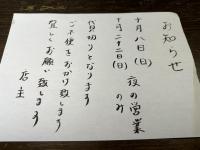 お知らせ
十月八日(日)
十月二十二日(日) 夜の営業のみ
貸切りとなります
ご不便をおかけ致します
宜しくお願い致します
店主